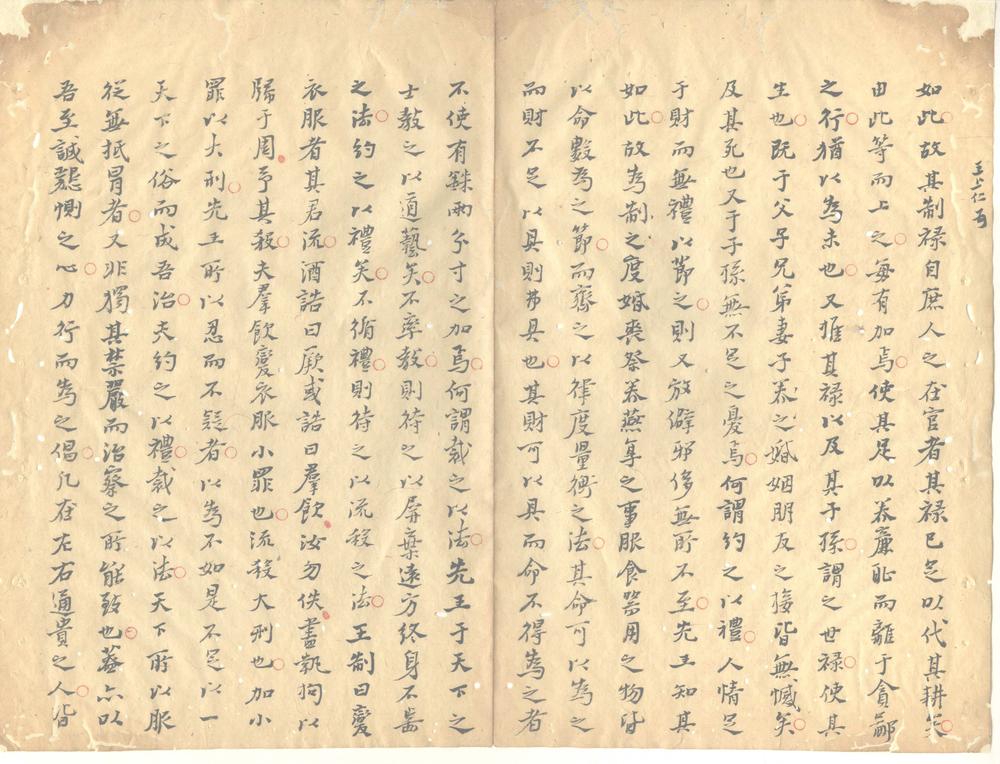 王上仁
如此故其制禄自庶人之在官者其禄已足以代其耕矣
由此等而上之每有加焉使其足以养廉耻而離于貪鄙
之行猶以為未也又推其禄以及其子孫謂之世禄使其
生也既于父子兄弟妻子养之婚姻朋友之接皆無憾矣
及其死也又于子孫無不足之憂焉何謂約之以禮人情足
于財而無禮以節之則又放僻邪侈無所不至先王知其
如此故為制之度婚喪祭养燕享之事服食器用之物皆
以命數為之節而齊之以律度量衡之法其命可以為之
而財不足以具則弗具也其財可以具而命不得為之者
不使有銖兩分寸之加焉何謂裁之以法先王于天下之
士教之以道藝矣不率教則待之以屏棄遠方終身不齒
之法約之以禮矣不循禮則待之以流殺之法王制曰變
衣服者其君流酒誥曰厥或誥曰羣飲汝勿佚盡執拘以
歸于周予其殺夫羣飲變衣服小罪也流殺大刑也加小
罪以大刑先王所以忍而不疑者以為不如是不足以一
天下之俗而成吾治夫約之以禮裁之以法天下所以服
從無抵冒者又非獨其禁嚴而治察之所能致也蓋亦以
吾至誠懇惻之心力行而為之倡凡在左右通貴之人皆